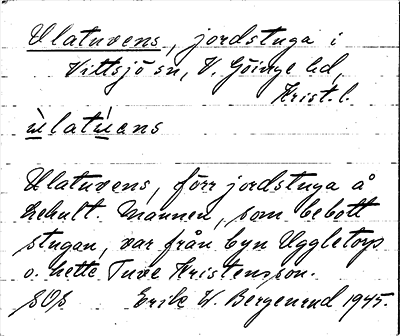 Ulatuvens, jordstuga i
Vittsjö sn, V. Göinge hd,
Krist. l.
ùlatùvens
Ulatuvens, förr jordstuga å
Hehult. Mannen, som bebott
stugan, var från byn Uggletorp
o. hette Tuve Kristensson.
Erik W. Bergenrud 1945.